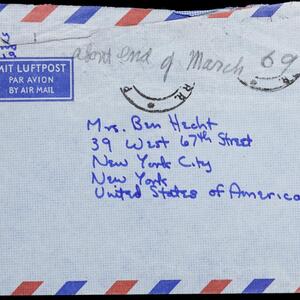 about end of March 69
MIT LUFTPOST
PAR AVION
BY AIR MAIL
Mrs. Ben Hecht
39 West 67th Street
New York City
New York
United States of America